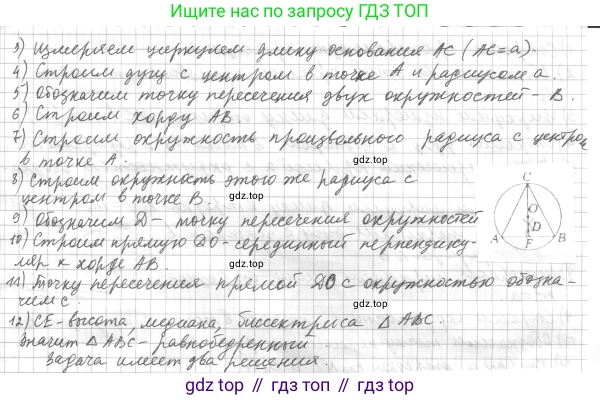 Ищите нас по запросу ГДЗ ТОП
3) Измеряем циркулем длину основания АС (АС=а).
4) Строим дугу с центром в точке А и радиусом а.
5) Обозначим точку пересечения двух окружностей – В.
6) Строим хорду АВ.
7) Строим окружность произвольного радиуса с центром
в точке А.
8) Строим окружность этого же радиуса с
центром в точке В.
9) Обозначим D – точку пересечения окружностей
10) Строим прямую DO – серединный перпендику-
ляр к хорде АВ.
11) Точку пересечения прямой DO с окружностью обозна-
чим С.
12) СЕ – высота, медиана, биссектриса △ АВС.
Значит △ АВС – равнобедренный.
Задача имеет два решения.
C
O
D
A
B
F
gdz.top
gdz.top
gdz.top
gdz.top
gdz.top
gdz.top
gdz.top
gdz top // гдз топ // gdz top // гдз топ